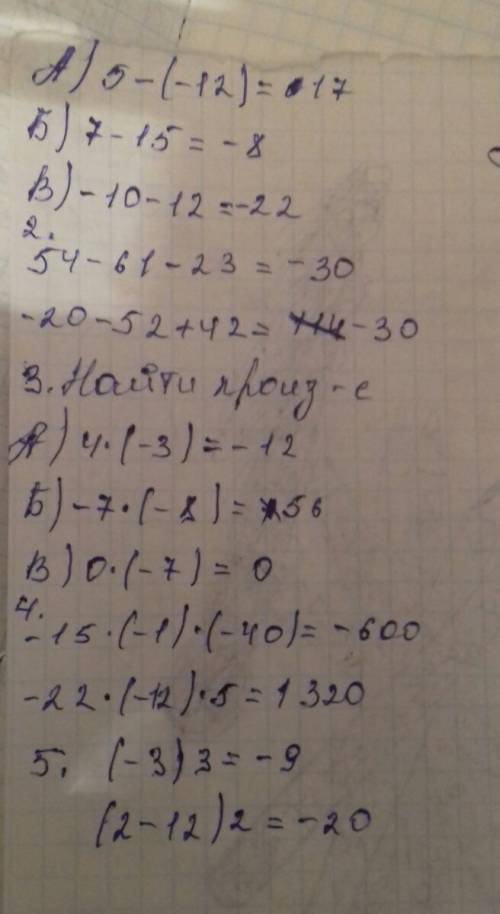 А) 5-(-12)= 17
Б) 7-15= -8
В) -10-12=-22
2.
54-61-23 = -30
-20-52+42= -30
3. Найти произ-е
А) 4·(-3)=-12
Б) -7·(-8)= 56
В) 0·(-7)= 0
4.
-15·(-1)·(-40)= -600
-22·(-12)·5=1320
5. (-3)3=-9
(2-12)2=-20